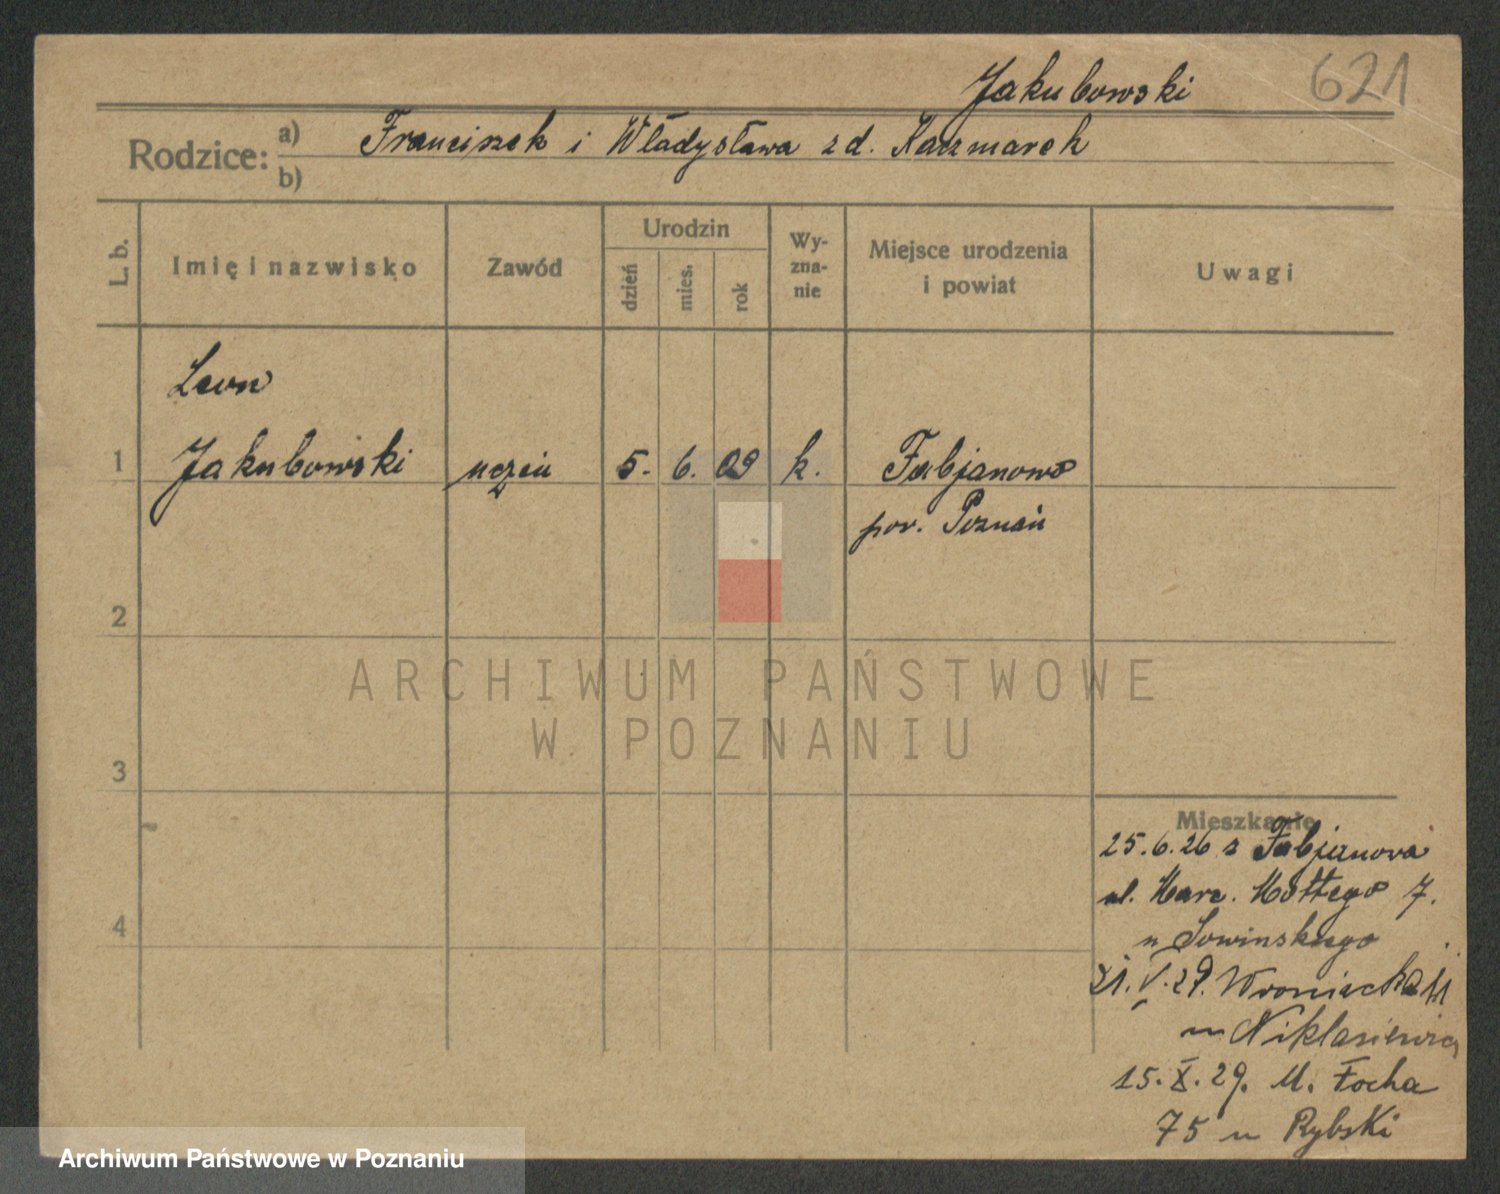 Jakubowski 621
Rodzice: a) Franciszek i Władysława zd. Kaczmarek
b)
L. b.
Imię i nazwisko
Zawód
Urodzin
dzień
mies.
rok
Wy-
zna-
nie
Miejsce urodzenia
i powiat
Uwagi
Leon
1 Jakubowski uczeń 5. 6. 09 k. Fabjanowo
pow. Poznań
2
ARCHIWUM PAŃSTWOWE
W POZNANIU
3
Mieszkanie
25.6.26 z Fabjanowa
4
ul. Marc. Mottego 7.
u Sowinskiego
21.V.29. Wroniecka
u Niklasiewicz
15.X.29. M. Focha
75 u Rybski
Archiwum Państwowe w Poznaniu